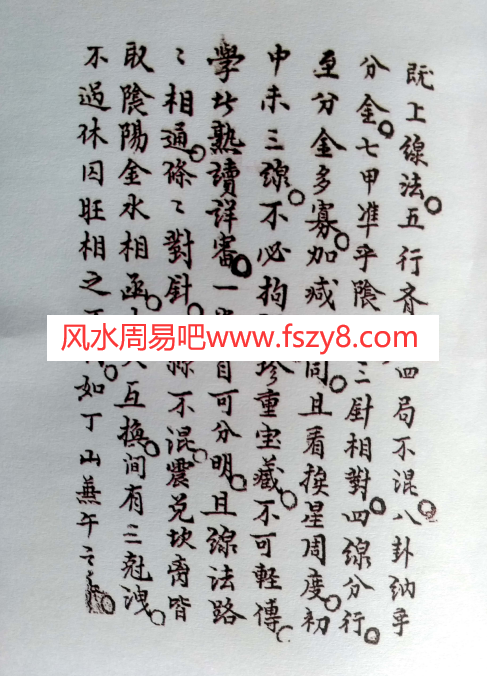 既上線法。五行斉四局不混。八卦納乎
分金。七甲准乎陰三針相對。四線分行。
至分金多寡。加减同。且看挨星周度。初
中末三線。不必拘珍重宝藏。不可輕傳。
學此熟讀詳審。一目可分明。且線法路
〻相通。條〻對針。綜不混。震兑坎离皆
取陰陽。金水相函。互換。間有三尅洩。
不過休囚旺相之如丁山兼午之
风水周易吧www.fszy8.com